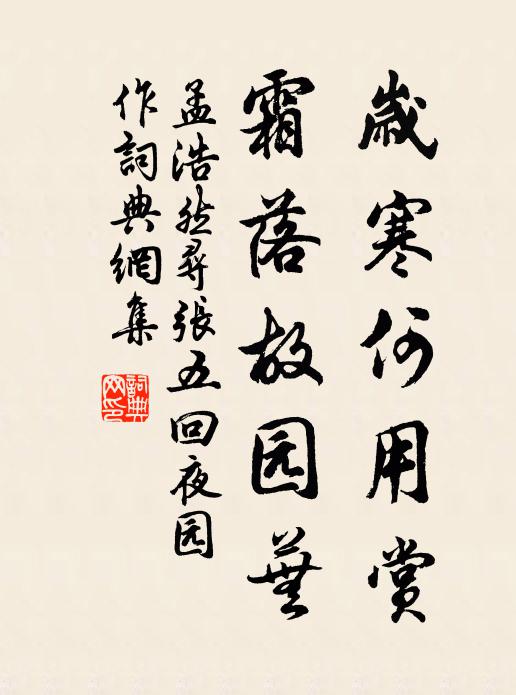 歲寒何用賞
霜落故园蕪
孟浩然尋張五回夜园
作詞典網集
詞典
网印